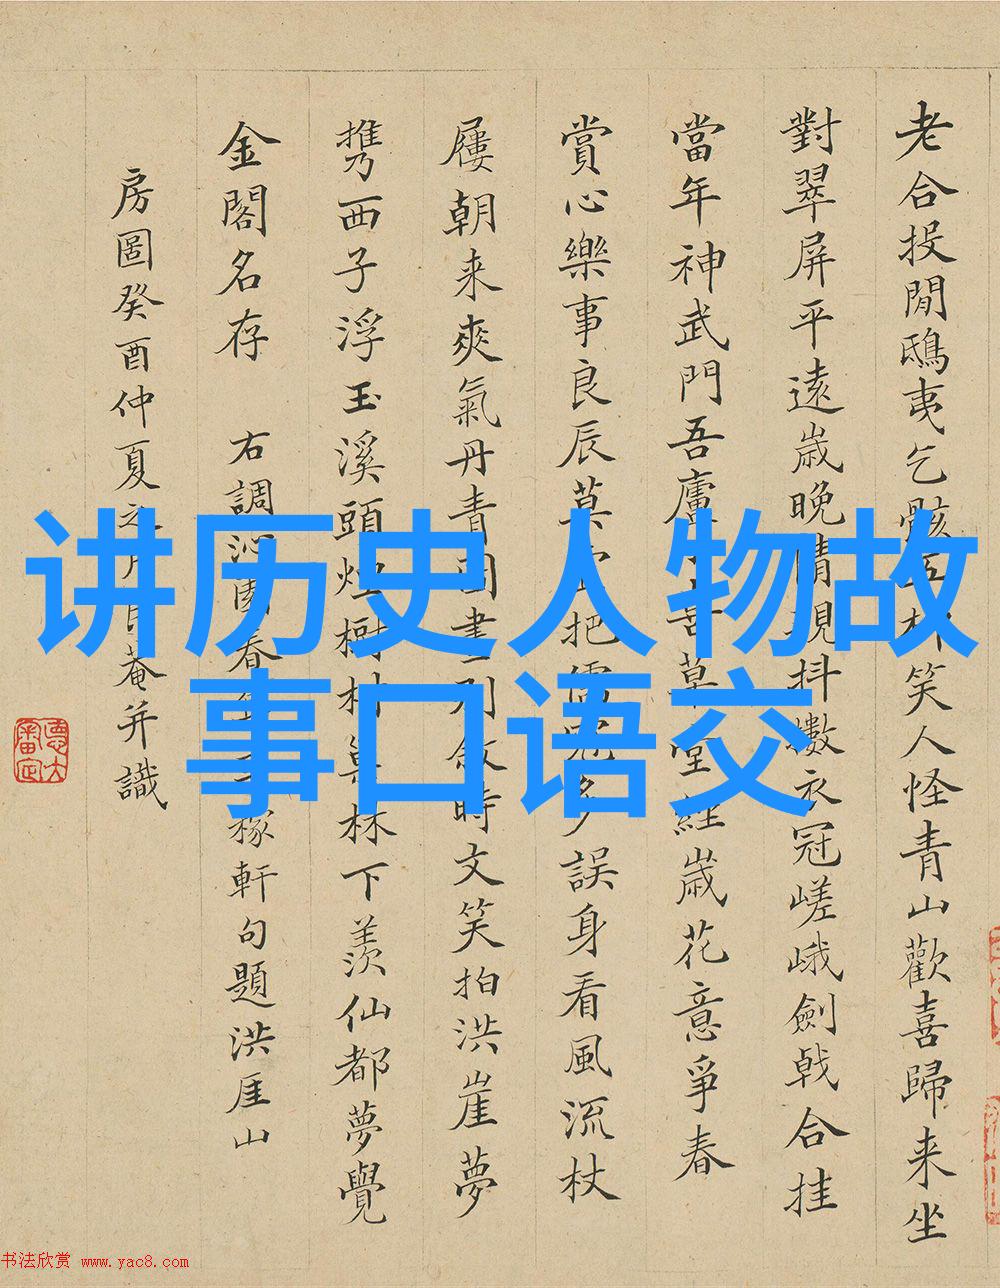 讲历史人物故
事口语交
老合投閒鴟夷乞骸笑人怪青山歡喜歸来坐
對翠屏平遠歲晚現抖擻衣冠嵯峨劍戟合挂
當年神武門吾廬草堂經歲花意爭春
賞心樂事良辰莫把儒冠多誤身看風流杖
屨朝来爽氣丹青圖畫時文笑拍洪崖夢
携西子浮玉溪頭烟樹村林下羨仙都夢覺
金閣名存 右調沁園春稼軒句題洪厓山
房圖癸酉仲夏之月菴并識
书法欣赏 www.yac8.com